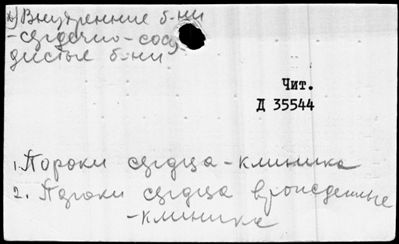 *) Внутренние б-ни
- сердечно-сосу
дистые б-ни
Чит.
Д 35544
1. Пороки сердца - клиника
2. Пороки сердца врожденные
- клиника